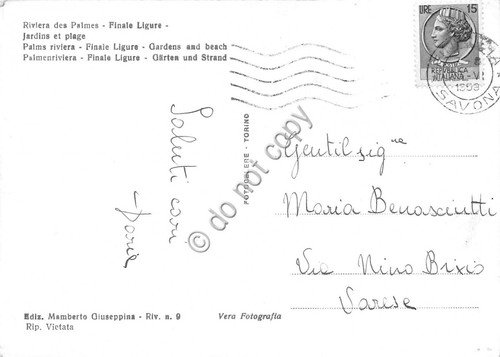 Riviera des Palmes - Finale Ligure -
Jardins et plage
Palms riviera - Finale Ligure - Gardens and beach
Palmenriviera - Finale Ligure - Gärten und Strand
LIRE 15
REPVBBLICA
ITALIANA
SAVONA
Saluti cari
FOTOCELERE - TORINO
do not copy
Gentil sig.na
Maria
Via Nino Bixio
Varese
Ediz. Mamberto Giuseppina - Riv. n. 9
Vera Fotografia
Rip. Vietata